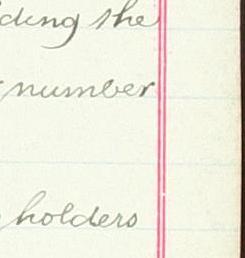 ding the
number
holders